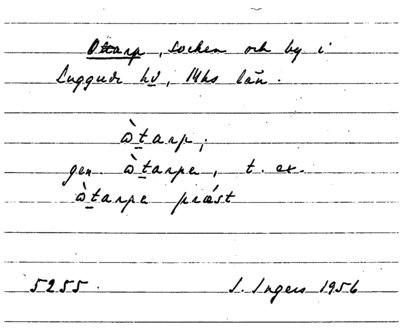 Ottarp, socken och by i
Luggude hd, Mhs län.
ò̀tarp;
gen. ò̀tarpa, t. ex.
ò̀tarpa præst
5255. I. Ingers 1956